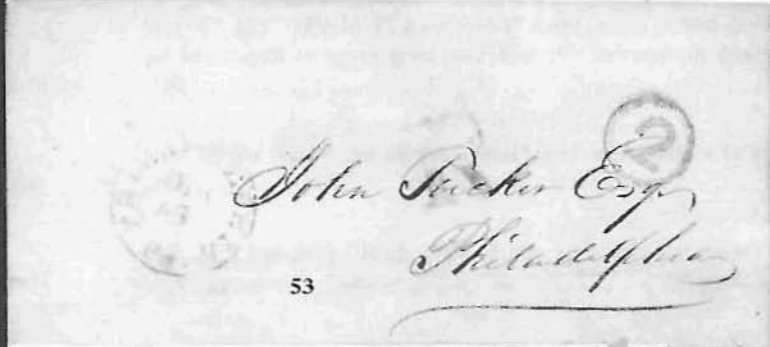 2
John Tucker Esq
Philadelphia
53